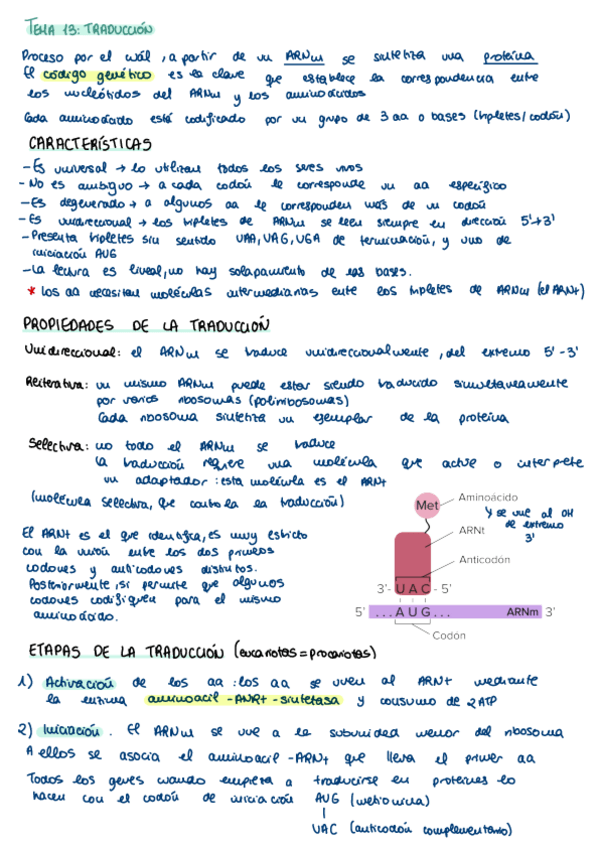 TEMA 13: TRADUCCIÓN
Proceso por el cuál, a partir de un ARNm se sintetiza una proteína
El código genético es la clave que establece la correspondencia entre
los nucleótidos del ARNm y los aminoácidos
Cada aminoácido está codificado por un grupo de 3 aa o bases (tripletes/codón)
CARACTERÍSTICAS
-Es universal → lo utilizan todos los seres vivos
-No es ambiguo → a cada codón le corresponde un aa específico
-Es degenerado → a algunos aa le corresponden más de un codón
-Es unidireccional → los tripletes de ARNm se leen siempre en dirección 5'→3'
-Presenta tripletes sin sentido UAA, UAG, UGA de terminación, y uno de
iniciación AUG
-La lectura es lineal, no hay solapamiento de las bases.
* Los aa necesitan moléculas intermediarias ente los tripletes de ARNm (el ARNt)
PROPIEDADES DE LA TRADUCCIÓN
Unidireccional: el ARNm se traduce unidireccionalmente, del extremo 5'-3'
Reiterativa: un mismo ARNm puede estar siendo traducido simultaneamente
por varios ribosomas (polirribosomas)
Cada ribosoma sintetiza un ejemplar de la proteína
Selectiva: no todo el ARNm se traduce
La traducción requiere una molécula que actue o interprete
un adaptador: esta molécula es el ARNt
(molécula selectiva, que controla la traducción)
El ARNt es el que identifica, es muy estricto
con la unión entre los dos primeros
codones y anticodones distintos.
Posteriormente, si permite que algunos
codones codifiquen para el mismo
aminoácido.
Met
Aminoácido
y se une al OH
de extremo
3'
ARNt
Anticodón
3'- U A C - 5'
5' ... A U G ... ARNm 3'
Codón
ETAPAS DE LA TRADUCCIÓN (eucariotas = procariotas)
1) Activación de los aa: los aa se unen al ARNt mediante
la enzima aminoacil-ANRt-sintetasa y consumo de 2 ATP
2) Iniciación. El ARNm se une a la subunidad menor del ribosoma
A ellos se asocia el aminoacil-ARNt que lleva el primer aa
Todos los genes cuando empieza a traducirse en proteínas lo
hacen con el codón de iniciación AUG (metionina)
UAC (anticodón complementario)